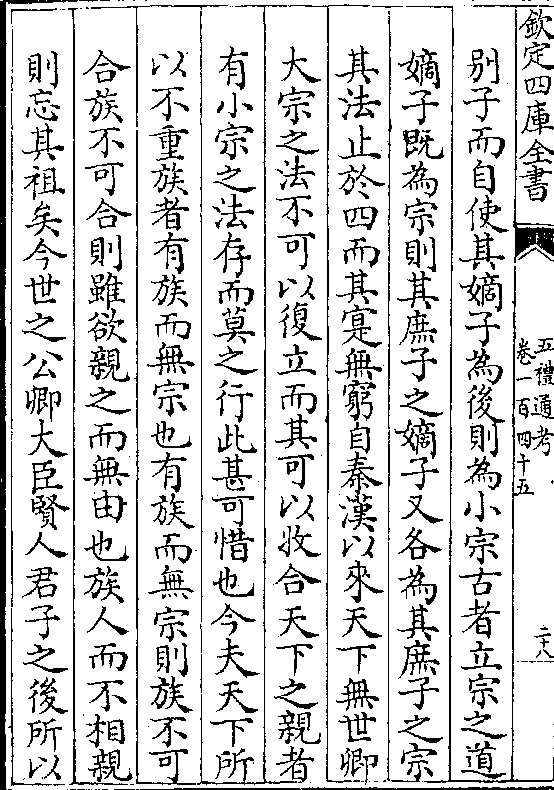 欽定四庫全書
五禮通考
卷一百四十五
二十八
别子而自使其嫡子為後則為小宗古者立宗之道
嫡子既為宗則其庶子之嫡子又各為其庶子之宗
其法止於四而其寔無窮自秦漢以來天下無世卿
大宗之法不可以復立而其可以收合天下之親者
有小宗之法存而莫之行此甚可惜也今夫天下所
以不重族者有族而無宗也有族而無宗則族不可
合族不可合則雖欲親之而無由也族人而不相親
則忘其祖矣今世之公卿大臣賢人君子之後所以